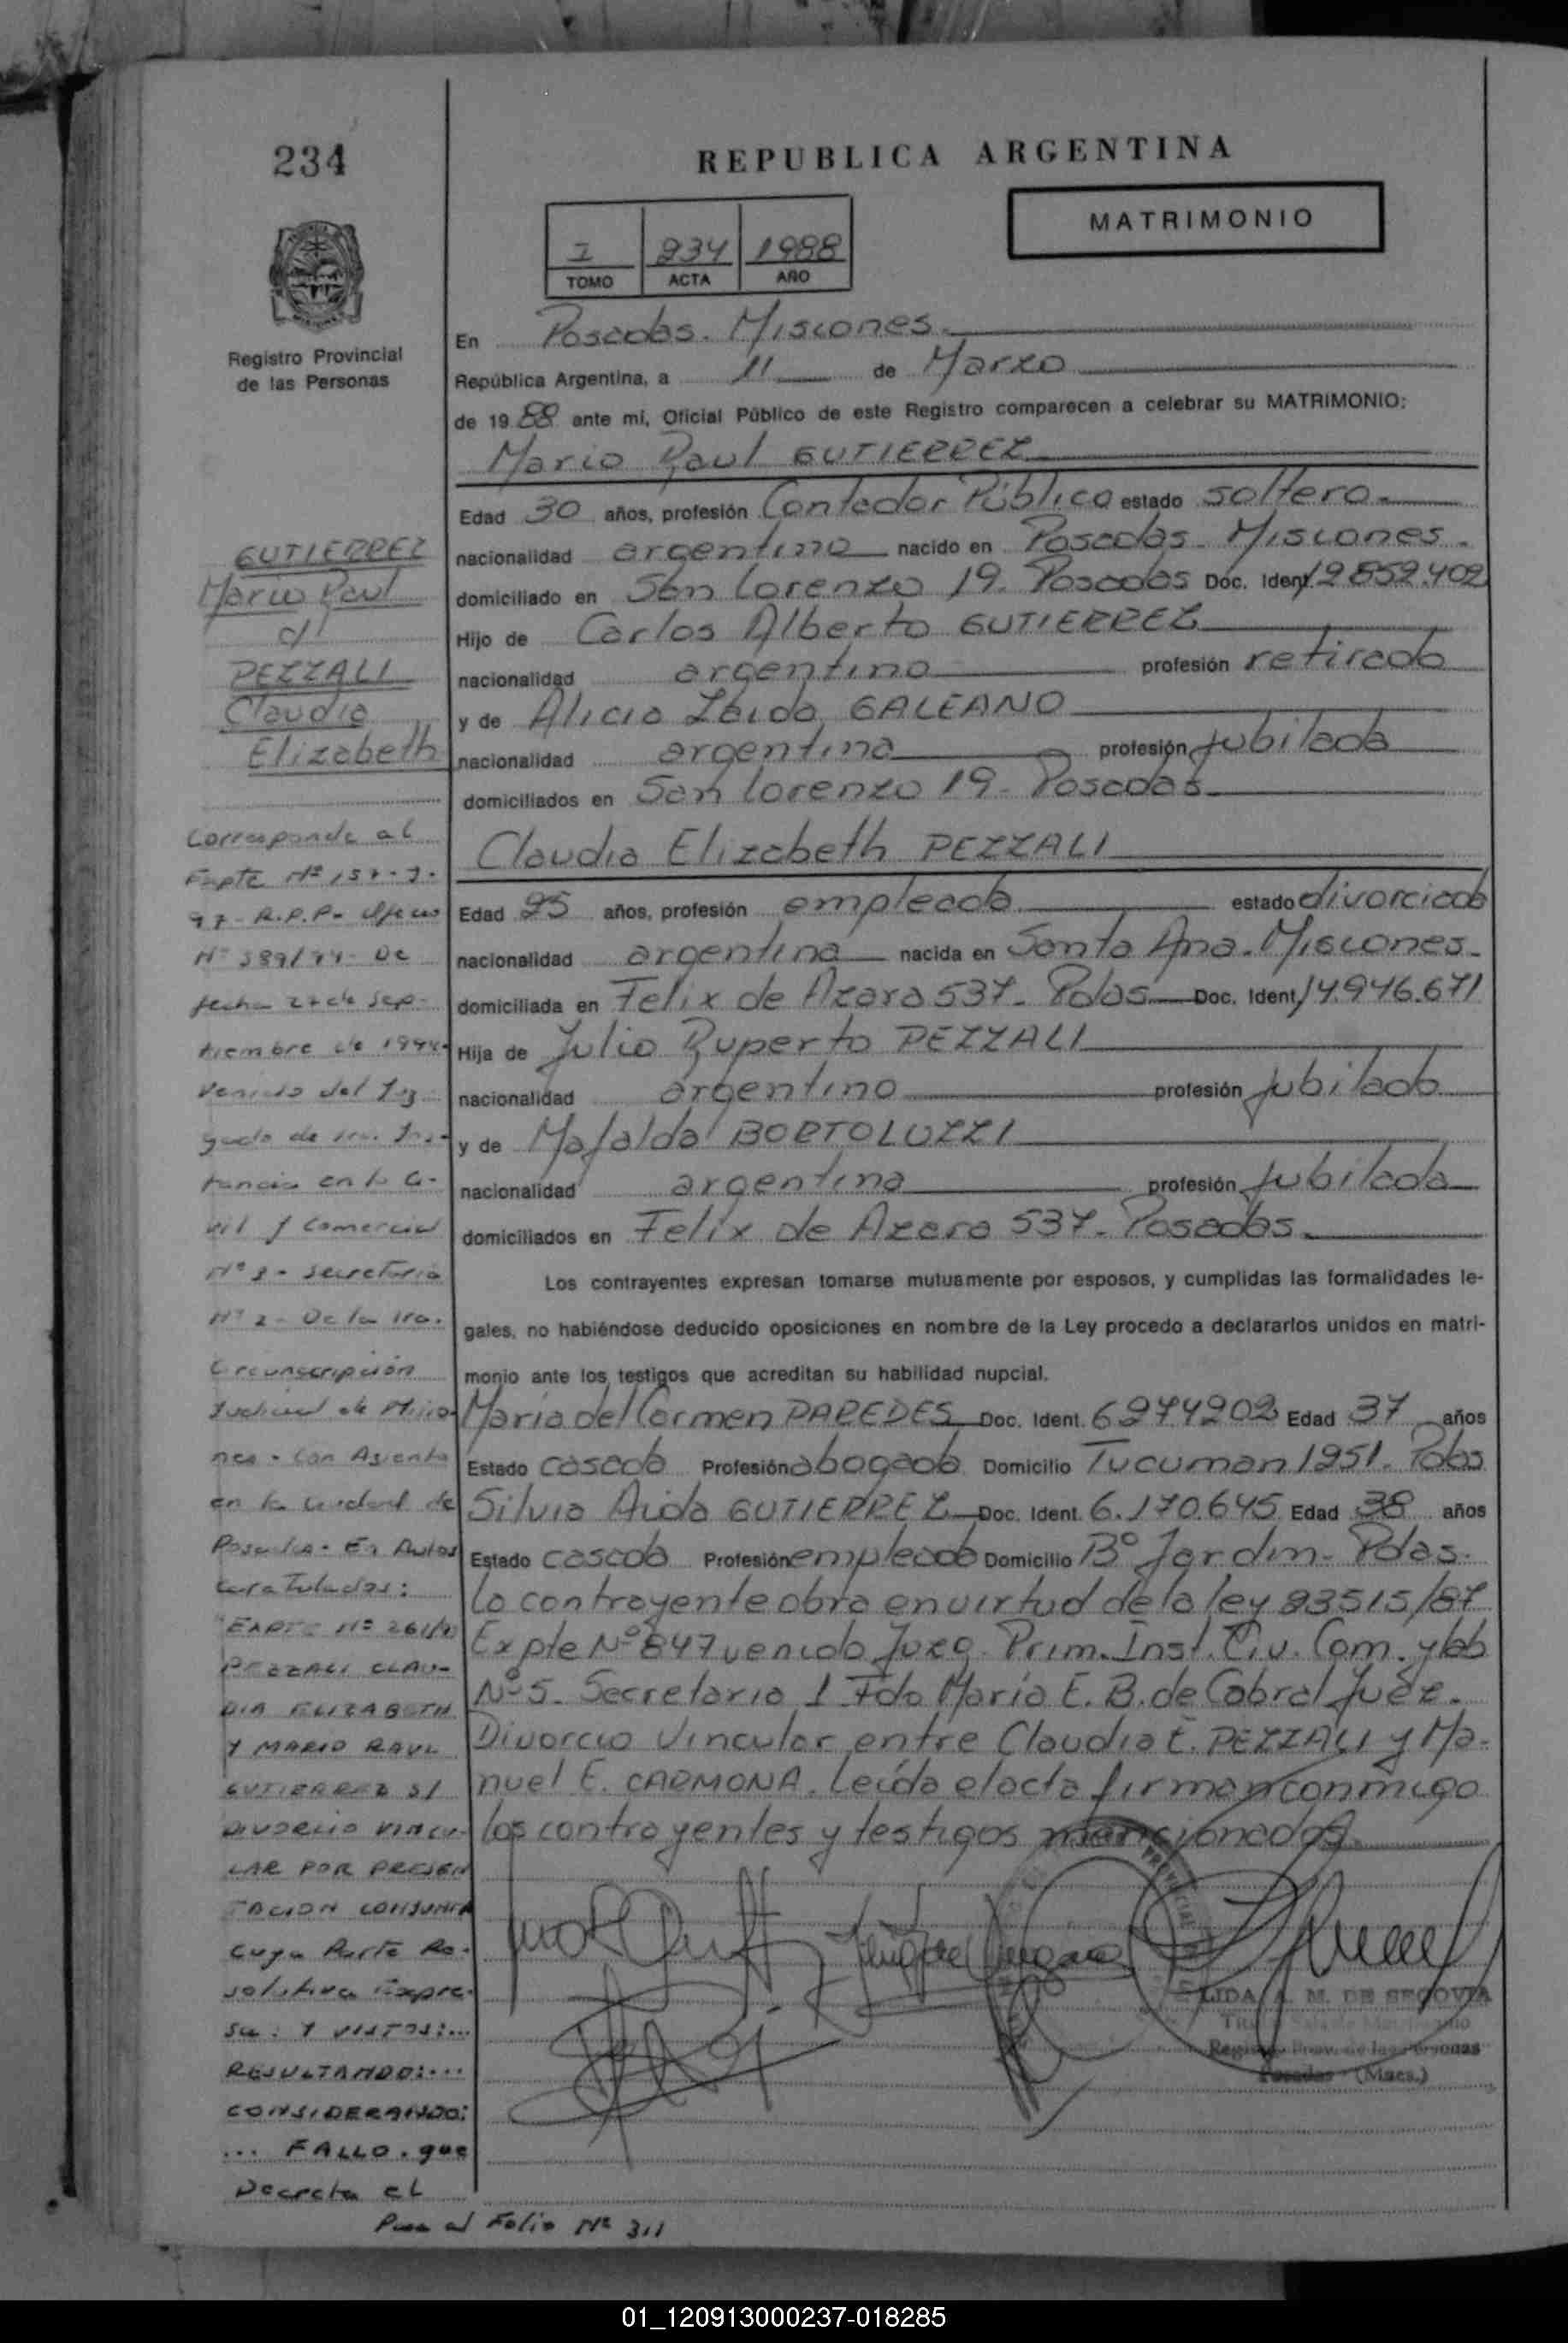 234
REPUBLICA ARGENTINA
MATRIMONIO
I 234 1988
TOMO ACTA AÑO
Registro Provincial
de las Personas
En Posadas. Misiones.
República Argentina, a 11 de Marzo
de 1988 ante mí, Oficial Público de este Registro comparecen a celebrar su MATRIMONIO:
Mario Raul GUTIERREZ
Edad 30 años, profesión Contador Público estado soltero.
nacionalidad argentino nacido en Posadas. Misiones.
domiciliado en San Lorenzo 19. Posadas Doc. Ident. 12.859.402
Hijo de Carlos Alberto GUTIERREZ
nacionalidad argentino profesión retirado
y de Alicia Zaida GALEANO
nacionalidad argentina profesión jubilada
domiciliados en San Lorenzo 19. Posadas.
Claudia Elizabeth PEZZALI
Edad 25 años, profesión empleada estado divorciada
nacionalidad argentina nacida en Santa Ana. Misiones.
domiciliada en Felix de Azara 537. Pdas. Doc. Ident. 14.946.671
Hija de Julio Ruperto PEZZALI
nacionalidad argentino profesión jubilado
y de Mafalda BORTOLUZZI
nacionalidad argentina profesión jubilada
domiciliados en Felix de Azara 537. Posadas.
Los contrayentes expresan tomarse mutuamente por esposos, y cumplidas las formalidades le-
gales, no habiéndose deducido oposiciones en nombre de la Ley procedo a declararlos unidos en matri-
monio ante los testigos que acreditan su habilidad nupcial.
Maria del Carmen PAREDES Doc. Ident. 6274202 Edad 37 años
Estado casada Profesión abogada Domicilio Tucuman 1951. Pdas
Silvia Aida GUTIERREZ Doc. Ident. 6.170.645 Edad 38 años
Estado casada Profesión empleada Domicilio Bº Jardin. Pdas.
La contrayente obra en virtud de la ley 23515/87
Expte Nº 847 venido Juzg. Prim. Inst. Civ. Com. y lab
Nº 5. Secretaria 1 Fdo Maria E. B. de Cabral Juez.
Divorcio Vincular entre Claudia E. PEZZALI y Ma-
nuel E. CARMONA. Leída el acta firman conmigo
los contrayentes y testigos mencionados.
LIDA A. M. DE SEGOVIA
Registro Prov. de las Personas
Posadas - (Mnes.)
GUTIERREZ
Mario Raul
c/
PEZZALI
Claudia
Elizabeth
Corresponde al
Expte Nº 157-J-
97- R.P.P- Oficio
Nº 389/94- De
fecha 27 de Sep-
tiembre de 1994.
Venido del Juz-
gado de 1ra. Ins-
tancia en lo Ci-
vil y Comercial
Nº 3- Secretaria
Nº 2- De la 1ra.
Circunscripción
Judicial de Misio-
nes. Con Asiento
en la ciudad de
Posadas. En Autos
Caratulados:
"EXPTE Nº
PEZZALI CLAU-
DIA ELIZABETH
Y MARIO RAUL
GUTIERREZ S/
DIVORCIO VINCU-
LAR POR PRESEN
TACION CONJUNTA
Cuya Parte Re-
solutiva Expre-
sa: Y VISTOS:...
RESULTANDO:...
CONSIDERANDO:
... FALLO. que
Decreta el
Pasa al Folio Nº 311
01_120913000237-018285